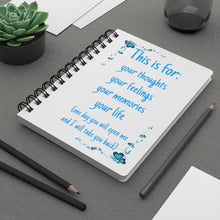 This is for:
your thoughts
your feelings
your memories
your life
(one day you will open me
and I will take you back)